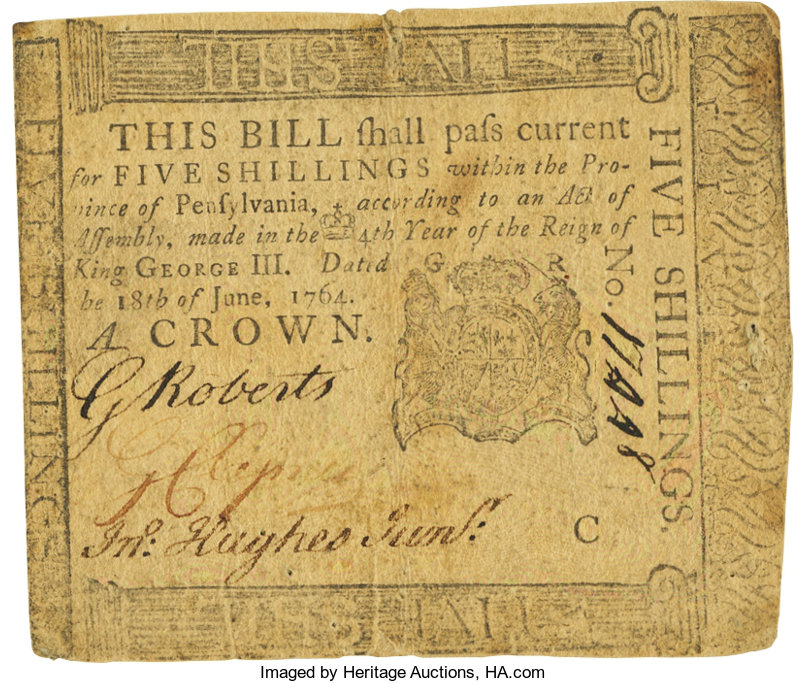 THIS BILL ſhall paſs current
for FIVE SHILLINGS within the Pro-
vince of Penſylvania, according to an Act of
Aſſembly, made in the 4th Year of the Reign of
King GEORGE III. Dated
he 18th of June, 1764.
G R
A CROWN.
G Roberts
Jnº. Hughes Junʳ.
C
No. 17448
FIVE SHILLINGS.
FIVE SHILLINGS
Imaged by Heritage Auctions, HA.com